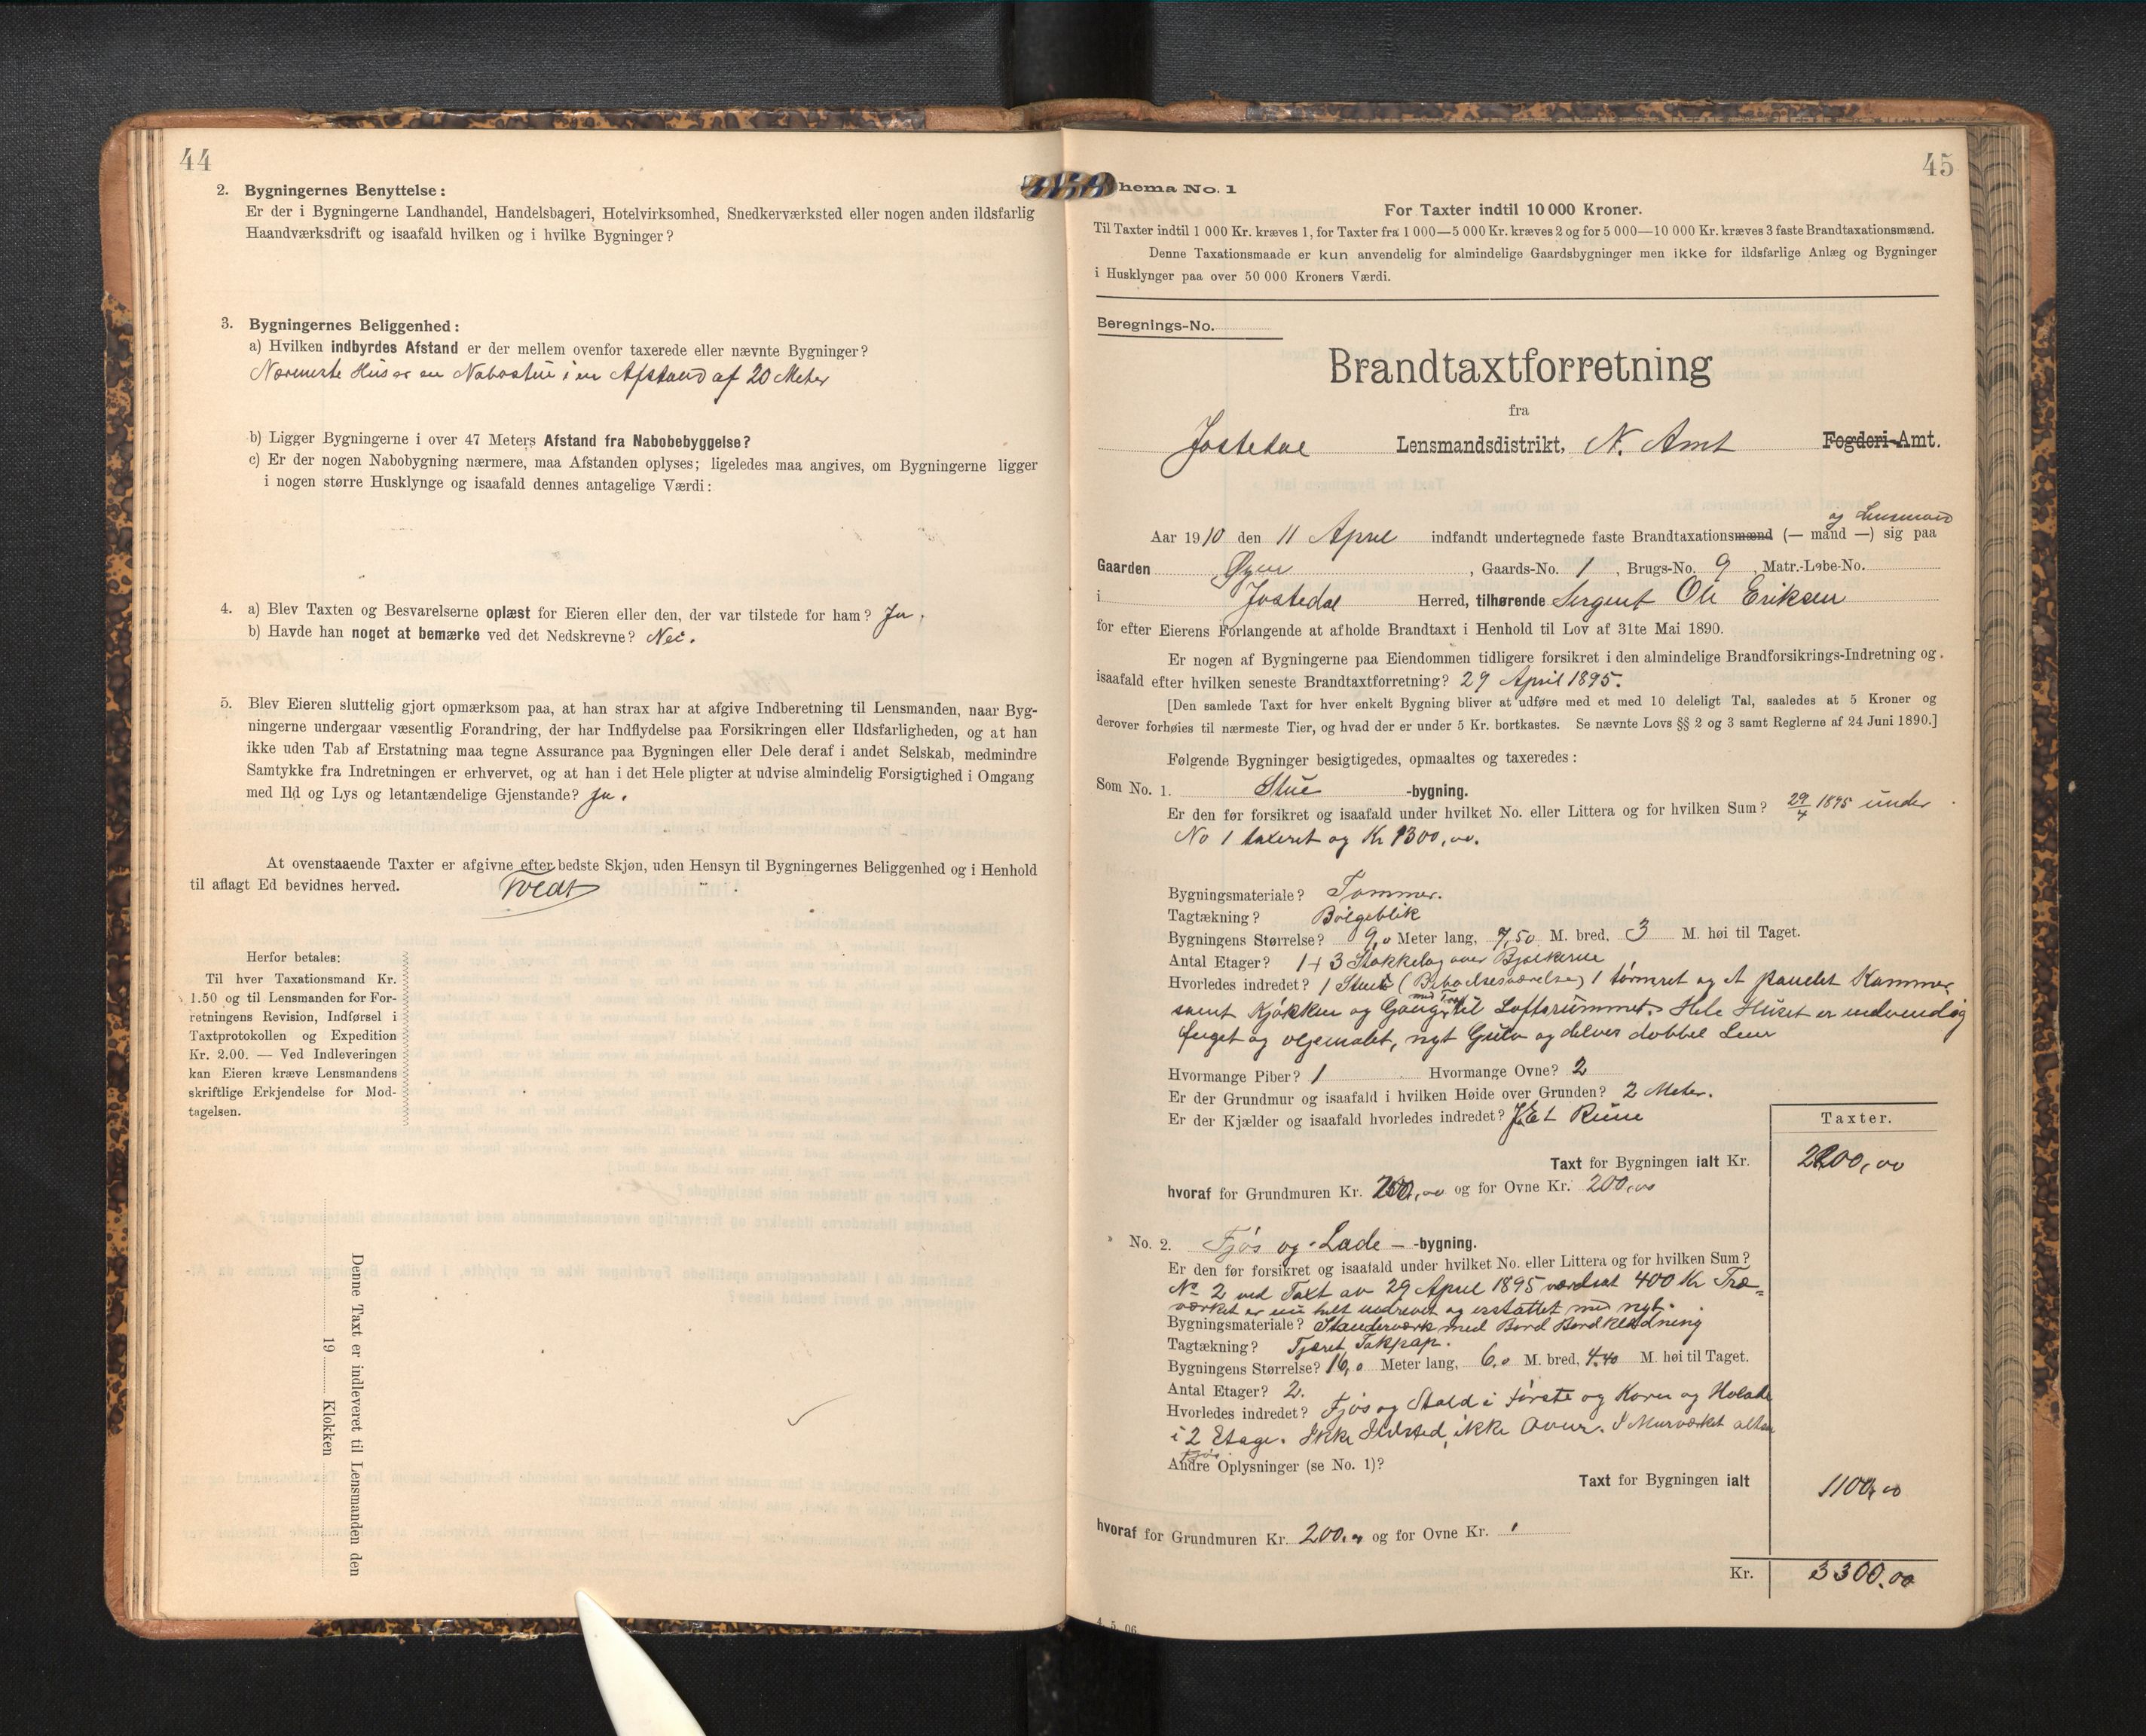 44
2. Bygningernes Benyttelse:
Er der i Bygningerne Landhandel, Handelsbageri, Hotelvirksomhed, Snedkerværksted eller nogen anden ildsfarlig
Haandværksdrift og isaafald hvilken og i hvilke Bygninger?
3. Bygningernes Beliggenhed:
a) Hvilken indbyrdes Afstand er der mellem ovenfor taxerede eller nævnte Bygninger?
Nærmeste Hus er en Nabostue i en Afstand af 20 Meter
b) Ligger Bygningerne i over 47 Meters Afstand fra Nabobebyggelse?
c) Er der nogen Nabobygning nærmere, maa Afstanden oplyses; ligeledes maa angives, om Bygningerne ligger
i nogen større Husklynge og isaafald dennes antagelige Værdi:
4. a) Blev Taxten og Besvarelserne oplæst for Eieren eller den, der var tilstede for ham? Ja.
b) Havde han noget at bemærke ved det Nedskrevne? Nei.
5. Blev Eieren sluttelig gjort opmærksom paa, at han strax har at afgive Indberetning til Lensmanden, naar Byg-
ningerne undergaar væsentlig Forandring, der har Indflydelse paa Forsikringen eller Ildsfarligheden, og at han
ikke uden Tab af Erstatning maa tegne Assurance paa Bygningen eller Dele deraf i andet Selskab, medmindre
Samtykke fra Indretningen er erhvervet, og at han i det Hele pligter at udvise almindelig Forsigtighed i Omgang
med Ild og Lys og letantændelige Gjenstande? Ja.
At ovenstaaende Taxter er afgivne efter bedste Skjøn, uden Hensyn til Bygningernes Beliggenhed og i Henhold
til aflagt Ed bevidnes herved.
Herfor betales:
Til hver Taxationsmand Kr.
1.50 og til Lensmanden for For-
retningens Revision, Indførsel i
Taxtprotokollen og Expedition
Kr. 2.00. — Ved Indleveringen
kan Eieren kræve Lensmandens
skriftlige Erkjendelse for Mod-
tagelsen.
Denne Taxt er indleveret til Lensmanden den
19 Klokken
45
hema No. 1
For Taxter indtil 10 000 Kroner.
Til Taxter indtil 1 000 Kr. kræves 1, for Taxter fra 1 000—5 000 Kr. kræves 2 og for 5 000—10 000 Kr. kræves 3 faste Brandtaxationsmænd.
Denne Taxationsmaade er kun anvendelig for almindelige Gaardsbygninger men ikke for ildsfarlige Anlæg og Bygninger
i Husklynger paa over 50 000 Kroners Værdi.
Beregnings-No.
Brandtaxtforretning
fra
Jostedal Lensmandsdistrikt, N. Amt Fogderi-Amt.
og Lensmand
Aar 1910 den 11 April indfandt undertegnede faste Brandtaxationsmænd (— mand —) sig paa
Gaarden Øyen, Gaards-No. 1, Brugs-No. 9, Matr.-Løbe-No.
i Jostedal Herred, tilhørende Sergent Ole Eriksen
for efter Eierens Forlangende at afholde Brandtaxt i Henhold til Lov af 31te Mai 1890.
Er nogen af Bygningerne paa Eiendommen tidligere forsikret i den almindelige Brandforsikrings-Indretning og
isaafald efter hvilken seneste Brandtaxtforretning? 29 April 1895.
[Den samlede Taxt for hver enkelt Bygning bliver at udføre med et med 10 deleligt Tal, saaledes at 5 Kroner og
derover forhøies til nærmeste Tier, og hvad der er under 5 Kr. bortkastes. Se nævnte Lovs §§ 2 og 3 samt Reglerne af 24 Juni 1890.]
Følgende Bygninger besigtigedes, opmaaltes og taxeredes:
Som No. 1. Stue -bygning.
Er den før forsikret og isaafald under hvilket No. eller Littera og for hvilken Sum? 29/4 1895 under
No 1 taxeret og Kr 1300,00.
Bygningsmateriale? Tømmer.
Tagtækning? Bølgeblik
Bygningens Størrelse? 9,0 Meter lang, 7,50 M. bred, 3 M. høi til Taget.
Antal Etager? 1 + 3 Stokkelag over Bjelkerne
Hvorledes indredet? 1 Stue (Beboelsesværelse) 1 tømret og et panelet Kammer
samt Kjøkken og Gang med Trap til Loftsrummet. Hele Huset er indvendig
fuget og oljemalet, nyt Gulv og delvis dobbel Leur
Hvormange Piber? 1 Hvormange Ovne? 2
Er der Grundmur og isaafald i hvilken Høide over Grunden? 2 Meter.
Er der Kjælder og isaafald hvorledes indredet? Et Rum
Taxter.
Taxt for Bygningen ialt Kr. 2200,00
hvoraf for Grundmuren Kr. 200,00 og for Ovne Kr. 200,00
No. 2. Fjøs og Lade — -bygning.
Er den før forsikret og isaafald under hvilket No. eller Littera og for hvilken Sum?
No 2 ved Taxt av 29 April 1895 værdsat 400 Kr Træ-
værket er nu helt nedrevet og erstattet med nyt.
Bygningsmateriale? Standerværk med Bord Bordklædning
Tagtækning? Tjæret Takpap.
Bygningens Størrelse? 16,0 Meter lang, 6,0 M. bred, 4.40 M. høi til Taget.
Antal Etager? 2.
Hvorledes indredet? Fjøs og Stald i første og Korn og Hølade
i 2 Etage. Ikke Ildsted, ikke Ovne. I Murværket
Fjøs
Andre Oplysninger (se No. 1)?
Taxt for Bygningen ialt 1100,00
hvoraf for Grundmuren Kr. 200.00 og for Ovne Kr.
Kr. 3300.00
4. 5. 06